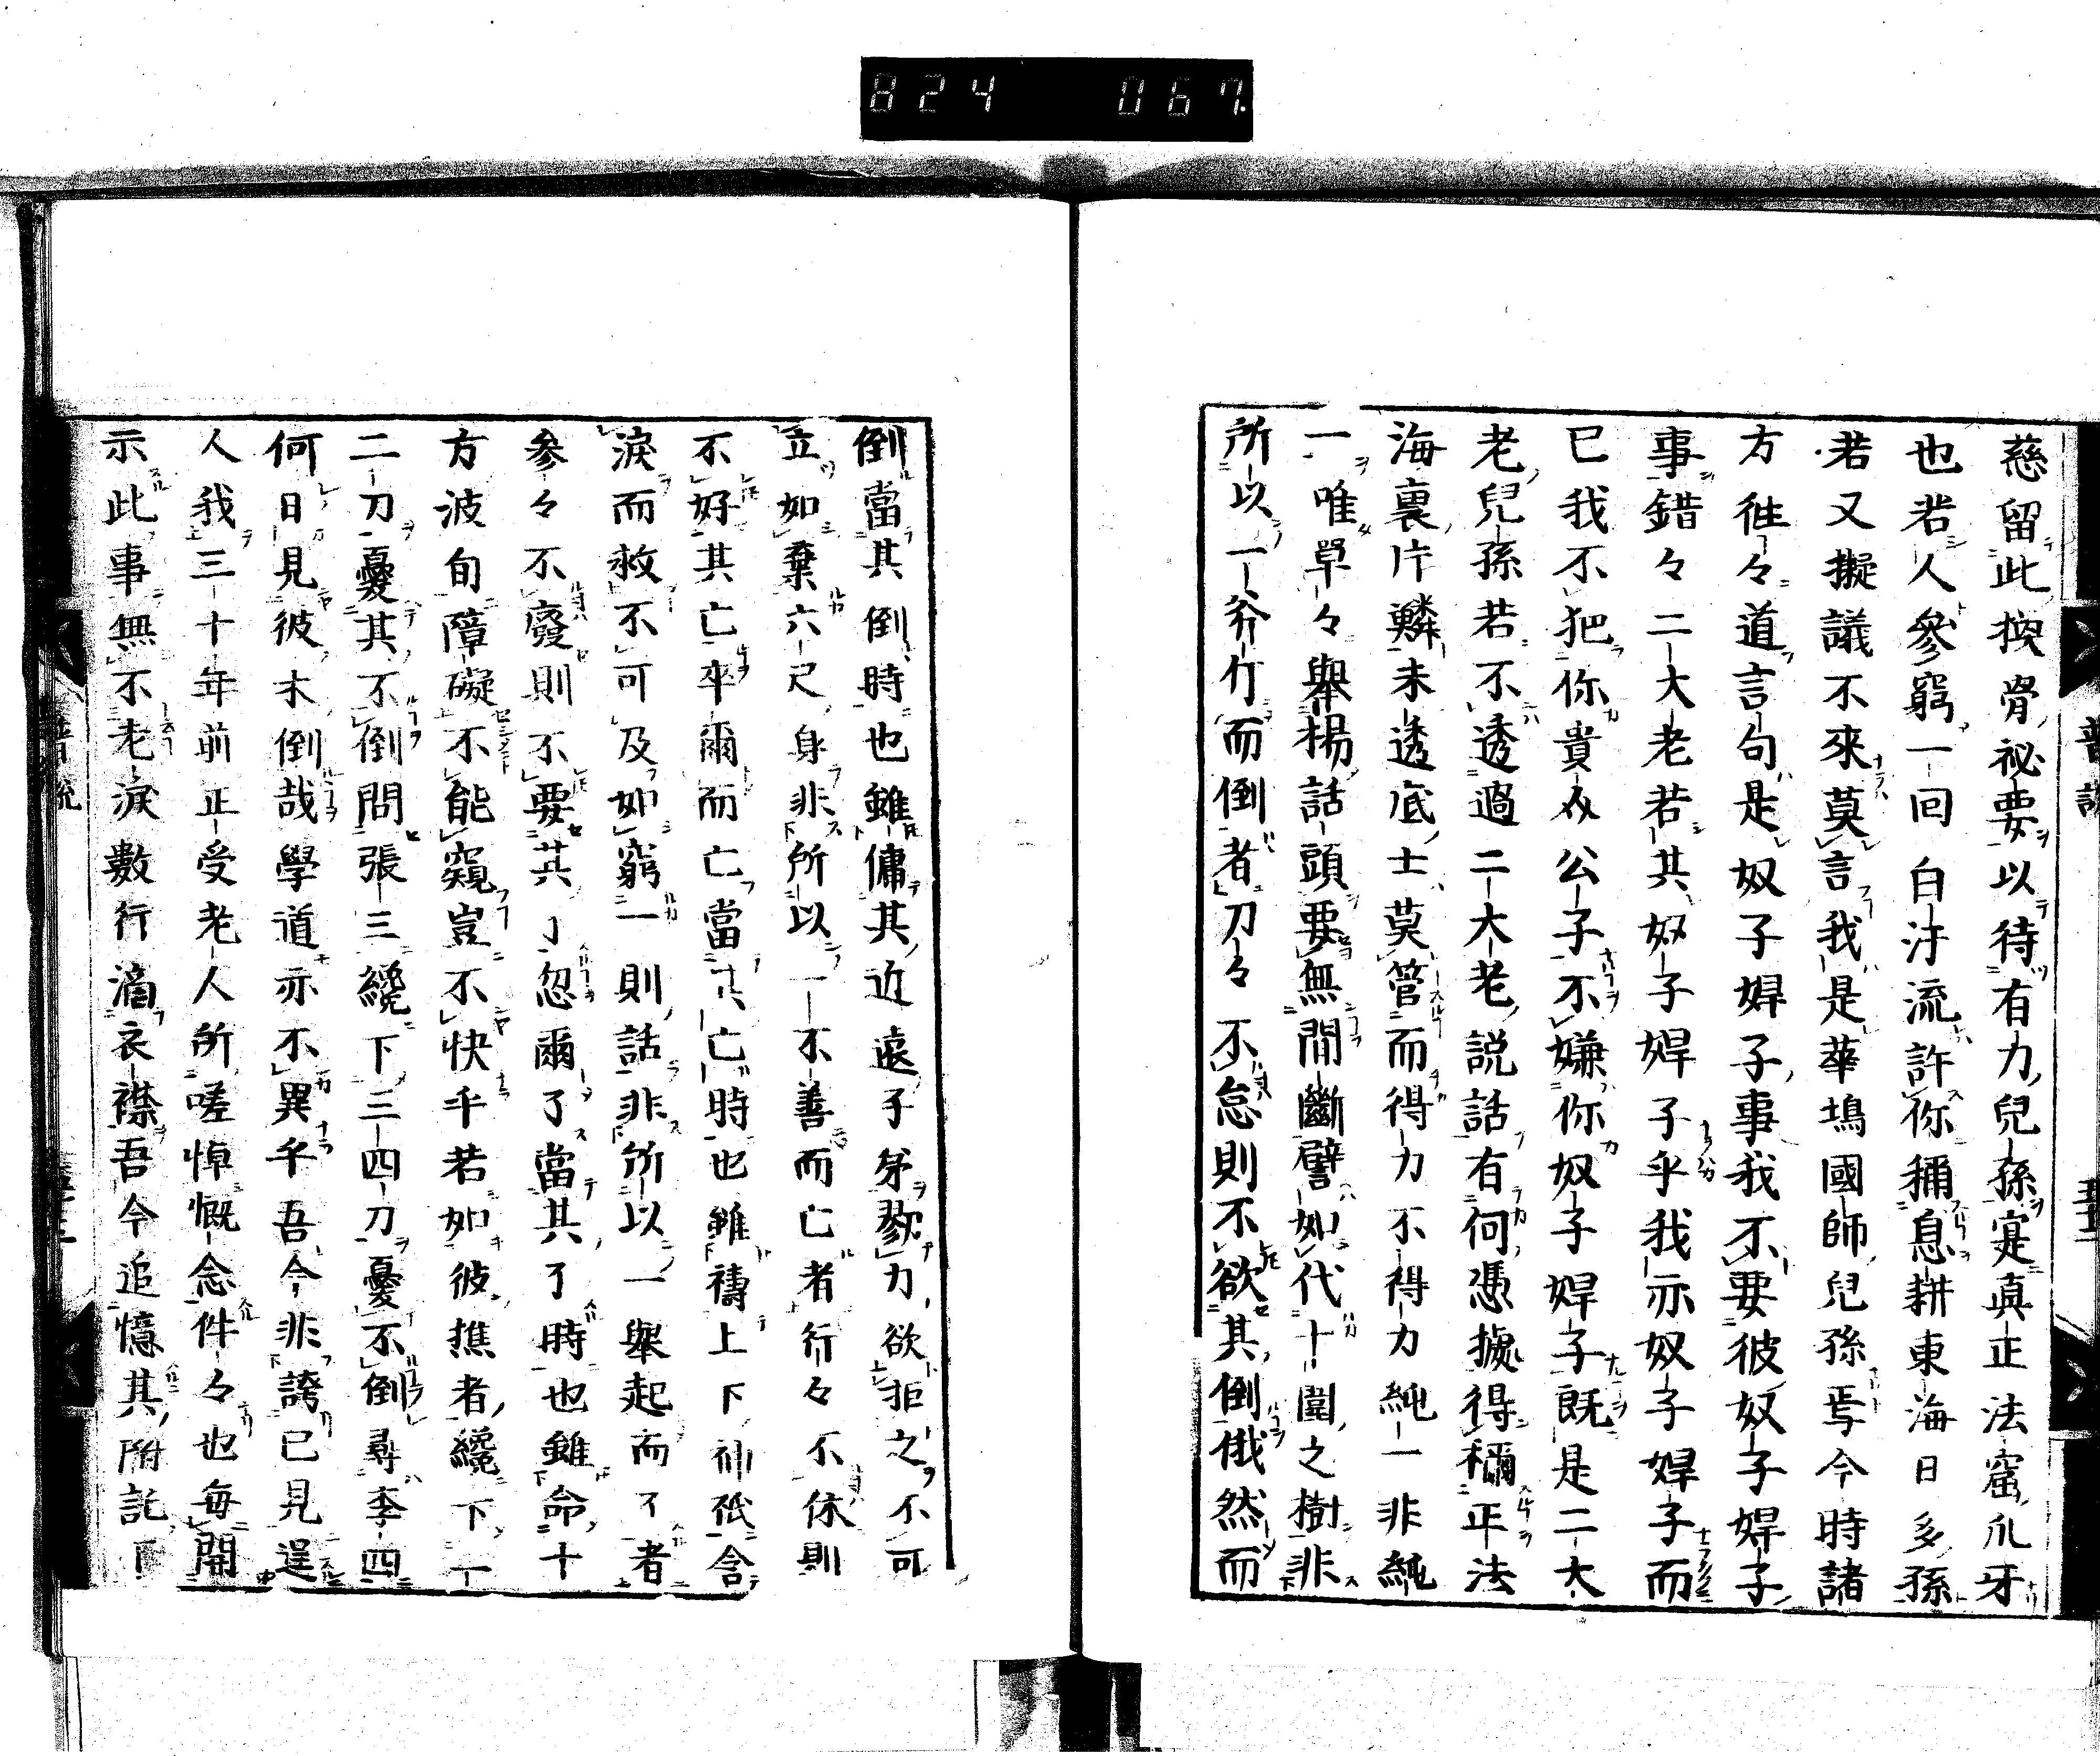 824 067
慈留此換骨祕要以待有力兒孫寔真正法窟爪牙
也若人參窮一回白汗流許你稱息耕東海日多孫
若又擬議不來莫言我是華塢國師兒孫焉今時諸
方徃々道言句是奴子婢子事我不要彼奴子婢子
事錯々二大老若其奴子婢子乎我亦奴子婢子而
已我不把你貴介公子不嫌你奴子婢子既是二大
老兒孫若不透過二大老説話有何憑據得稱正法
海裏片鱗未透底士莫管而得力不得力純一非純
一唯單々舉揚話頭要無間斷譬如代十圍之樹非
所以一斧行而倒者刀々不怠則不欲其倒俄然而
倒當其倒時也雖傭其近遠子弟勠力欲拒之不可
立如棄六尺身非所以一不善而亡者行々不休則
不好其亡卒爾而亡當其亡時也雖禱上下神祇含
淚而救不可及如窮一則話非所以一舉起而了者
參々不廢則不要其了忽爾了當其了時也雖命十
方波旬障礙不能窺豈不快乎若如彼樵者纔下一
二刀憂其不倒問張三纔下三四刀憂不倒尋李四
何日見彼木倒哉學道亦不異乎吾今非誇已見逞
人我三十年前正受老人所嗟悼慨念件々也每開
示此事無不老淚數行滴衣襟吾今追憶其附託